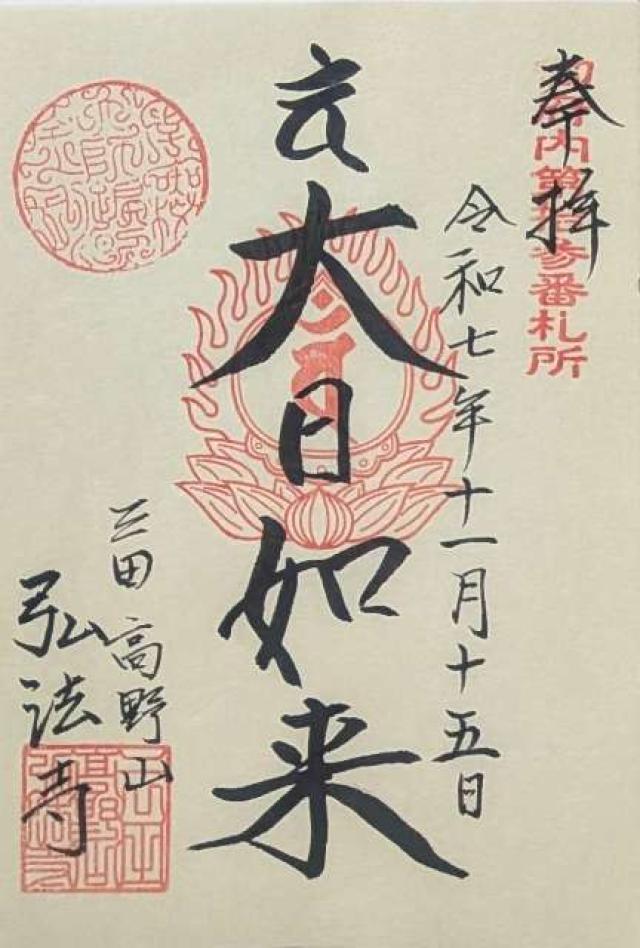 奉拝
御府内第拾参番札所
令和七年十一月十五日
大日如来
三田 高野山
弘法寺